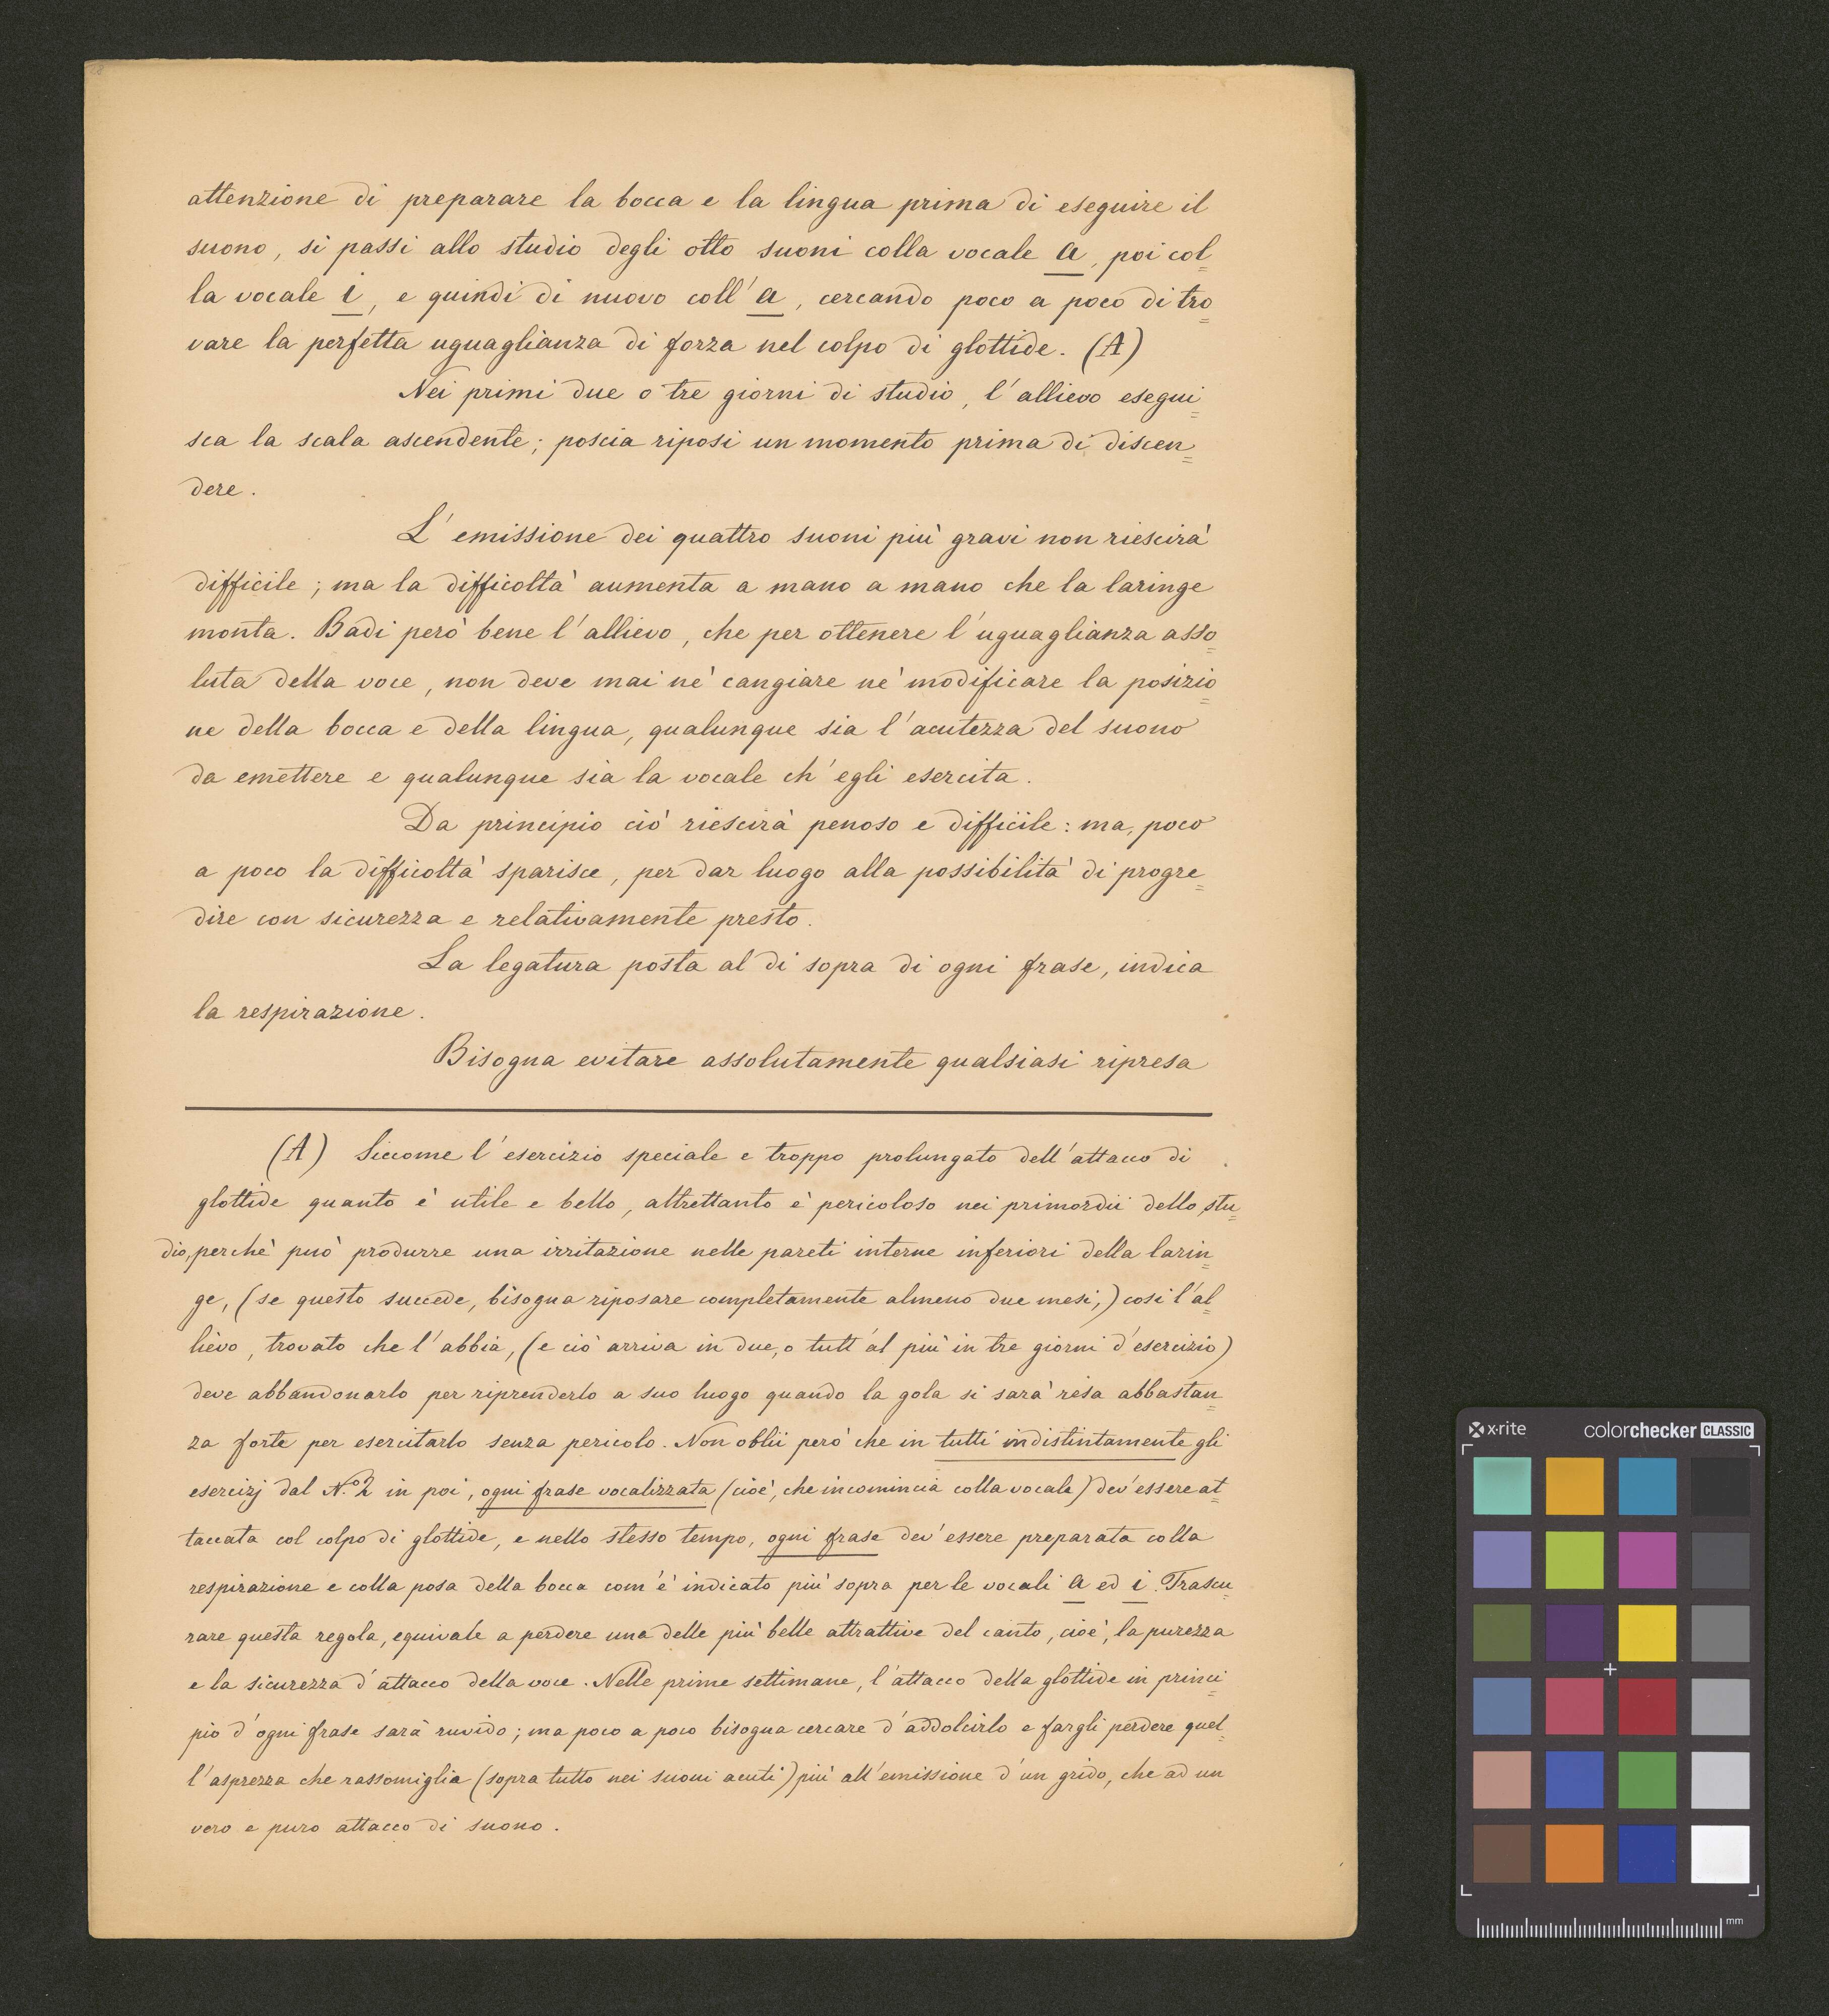 attenzione di preparare la bocca e la lingua prima di eseguire il
suono, si passi allo studio degli otto suoni colla vocale a, poi col=
la vocale i, e quindi di nuovo coll'a, cercando poco a poco di tro=
vare la perfetta uguaglianza di forza nel colpo di glottide. (A)
Nei primi due o tre giorni di studio, l'allievo esegui=
sca la scala ascendente; poscia riposi un momento prima di discen=
dere.
L'emissione dei quattro suoni più gravi non riescirà
difficile; ma la difficoltà aumenta a mano a mano che la laringe
monta. Badi però bene l'allievo, che per ottenere l'uguaglianza asso=
luta della voce, non deve mai nè cangiare nè modificare la posizio=
ne della bocca e della lingua, qualunque sia l'acutezza del suono
da emettere e qualunque sia la vocale ch'egli esercita.
Da principio ciò riescirà penoso e difficile: ma, poco
a poco la difficoltà sparisce, per dar luogo alla possibilità di progre=
dire con sicurezza e relativamente presto.
La legatura posta al di sopra di ogni frase, indica
la respirazione.
Bisogna evitare assolutamente qualsiasi ripresa
(A) Siccome l'esercizio speciale e troppo prolungato dell'attacco di
glottide quanto è utile e bello, altrettanto è pericoloso nei primordii dello stu=
dio, perchè può produrre una irritazione nelle pareti interne inferiori della larin=
ge, (se questo succede, bisogna riposare completamente almeno due mesi,) così l'al=
lievo, trovato che l'abbia, (e ciò arriva in due, o tutt'al più in tre giorni d'esercizio)
deve abbandonarlo per riprenderlo a suo luogo quando la gola si sarà resa abbastan=
za forte per esercitarlo senza pericolo. Non oblii però che in tutti indistintamente gli
esercizj dal N.º 2 in poi, ogni frase vocalizzata (cioè, che incomincia colla vocale) dev'essere at=
taccata col colpo di glottide, e nello stesso tempo, ogni frase dev'essere preparata colla
respirazione e colla posa della bocca com'è indicato più sopra per le vocali a ed i. Trascu=
rare questa regola, equivale a perdere una delle più belle attrattive del canto, cioè, la purezza
e la sicurezza d'attacco della voce. Nelle prime settimane, l'attacco della glottide in princi=
pio d'ogni frase sarà ruvido; ma poco a poco bisogna cercare d'addolcirlo e fargli perdere quel=
l'asprezza che rassomiglia (sopra tutto nei suoni acuti) più all'emissione d'un grido, che ad un
vero e puro attacco di suono.
x-rite colorchecker CLASSIC
mm